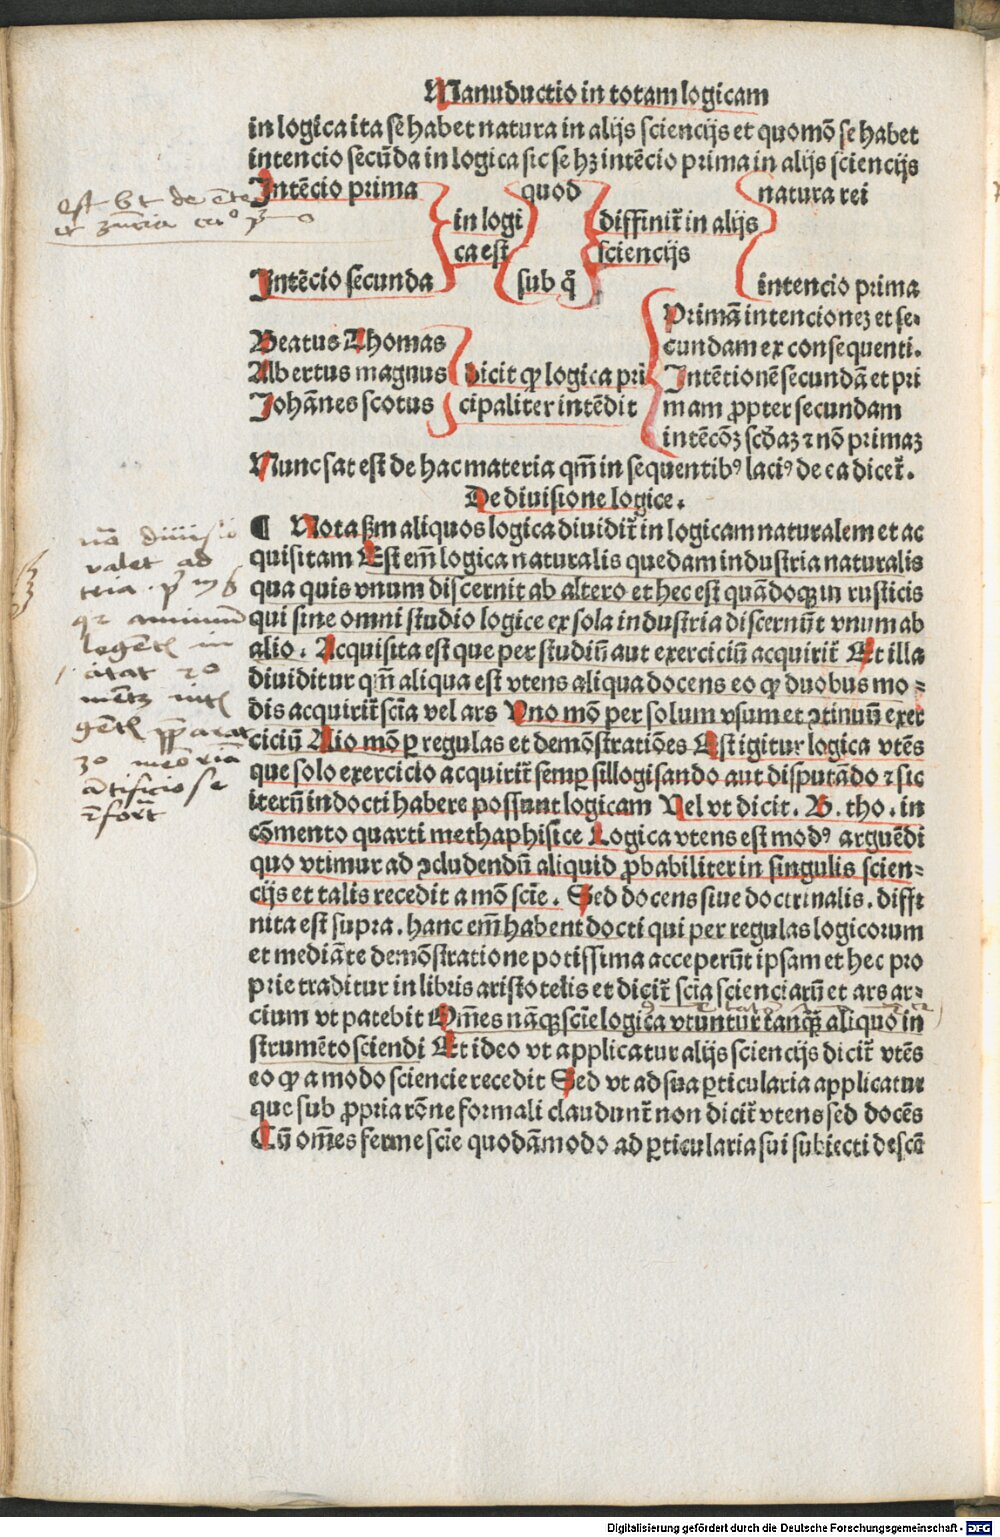 Manuductio in totam logicam
in logica ita se habet natura in alijs sciencijs et quomō se habet
intencio secūda in logica sic se hꝫ intēcio prima in alijs sciencijs
Intēcio prima quod natura rei
in logi diffinit᷑ in alijs
ca est sciencijs
Intēcio secunda sub q̊ intencio prima
Primā intencionez et se-
Beatus Thomas cundam ex consequenti.
Albertus magnus dicit ꝙ logica pri Intētionē secundā et pri
Johānes scotus cipaliter intēdit mam ꝓpter secundam
intēcōꝫ scd̄aꝫ ⁊ nō primaꝫ
Nunc sat est de hac materia qm̄ in sequentibꝰ laciꝰ de ea dicet᷑.
De diuisione logice.
¶ Nota ẞm aliquos logica diuidit᷑ in logicam naturalem et ac
quisitam Est em̄ logica naturalis quedam industria naturalis
qua quis vnum discernit ab altero et hec est quādoqꝫ in rusticis
qui sine omni studio logice ex sola industria discernūt vnum ab
alio. Acquisita est que per studiū aut exerciciū acquirit᷑ Et illa
diuiditur qm̄ aliqua est vtens aliqua docens eo ꝙ duobus mo-
dis acquirit᷑ scīa vel ars Vno mō per solum vsum et ꝯtinuū exer
ciciū Alio mō ꝑ regulas et demōstratiōes Est igitur logica vtēs
que solo exercicio acquirit᷑ semꝑ sillogisando aut disputādo ⁊ sic
iterū indocti habere possunt logicam Vel vt dicit. B. tho. in
cōmento quarti methaphisīce Logica vtens est modꝰ arguēdi
quo vtimur ad ꝯcludendū aliquid ꝓbabiliter in singulis scien-
cijs et talis recedit a mō scīe. Sed docens siue doctrinalis. diffi
nita est supra. hanc em̄ habent docti qui per regulas logicorum
et mediāte demōstratione potissima acceperūt ipsam et hec pro
prie traditur in libris aristotelis et dicit᷑ scīa scienciarū et ars ar-
cium vt patebit Om̄es nāqꝫ scīe logica vtuntur tanqꝫ aliquo in
strumēto sciendi Et ideo vt applicatur alijs sciencijs dicit᷑ vtēs
eo ꝙ a modo sciencie recedit Sed vt ad sua ꝑticularia applicatur
que sub ꝓpria rōne formali claudunt᷑ non dicit᷑ vtens sed docēs
Cū om̄es ferme scīe quodāmodo ad ꝑticularia sui subiecti descē
nō diuisio
valet ad
Digitalisierung gefördert durch die Deutsche Forschungsgemeinschaft - DFG